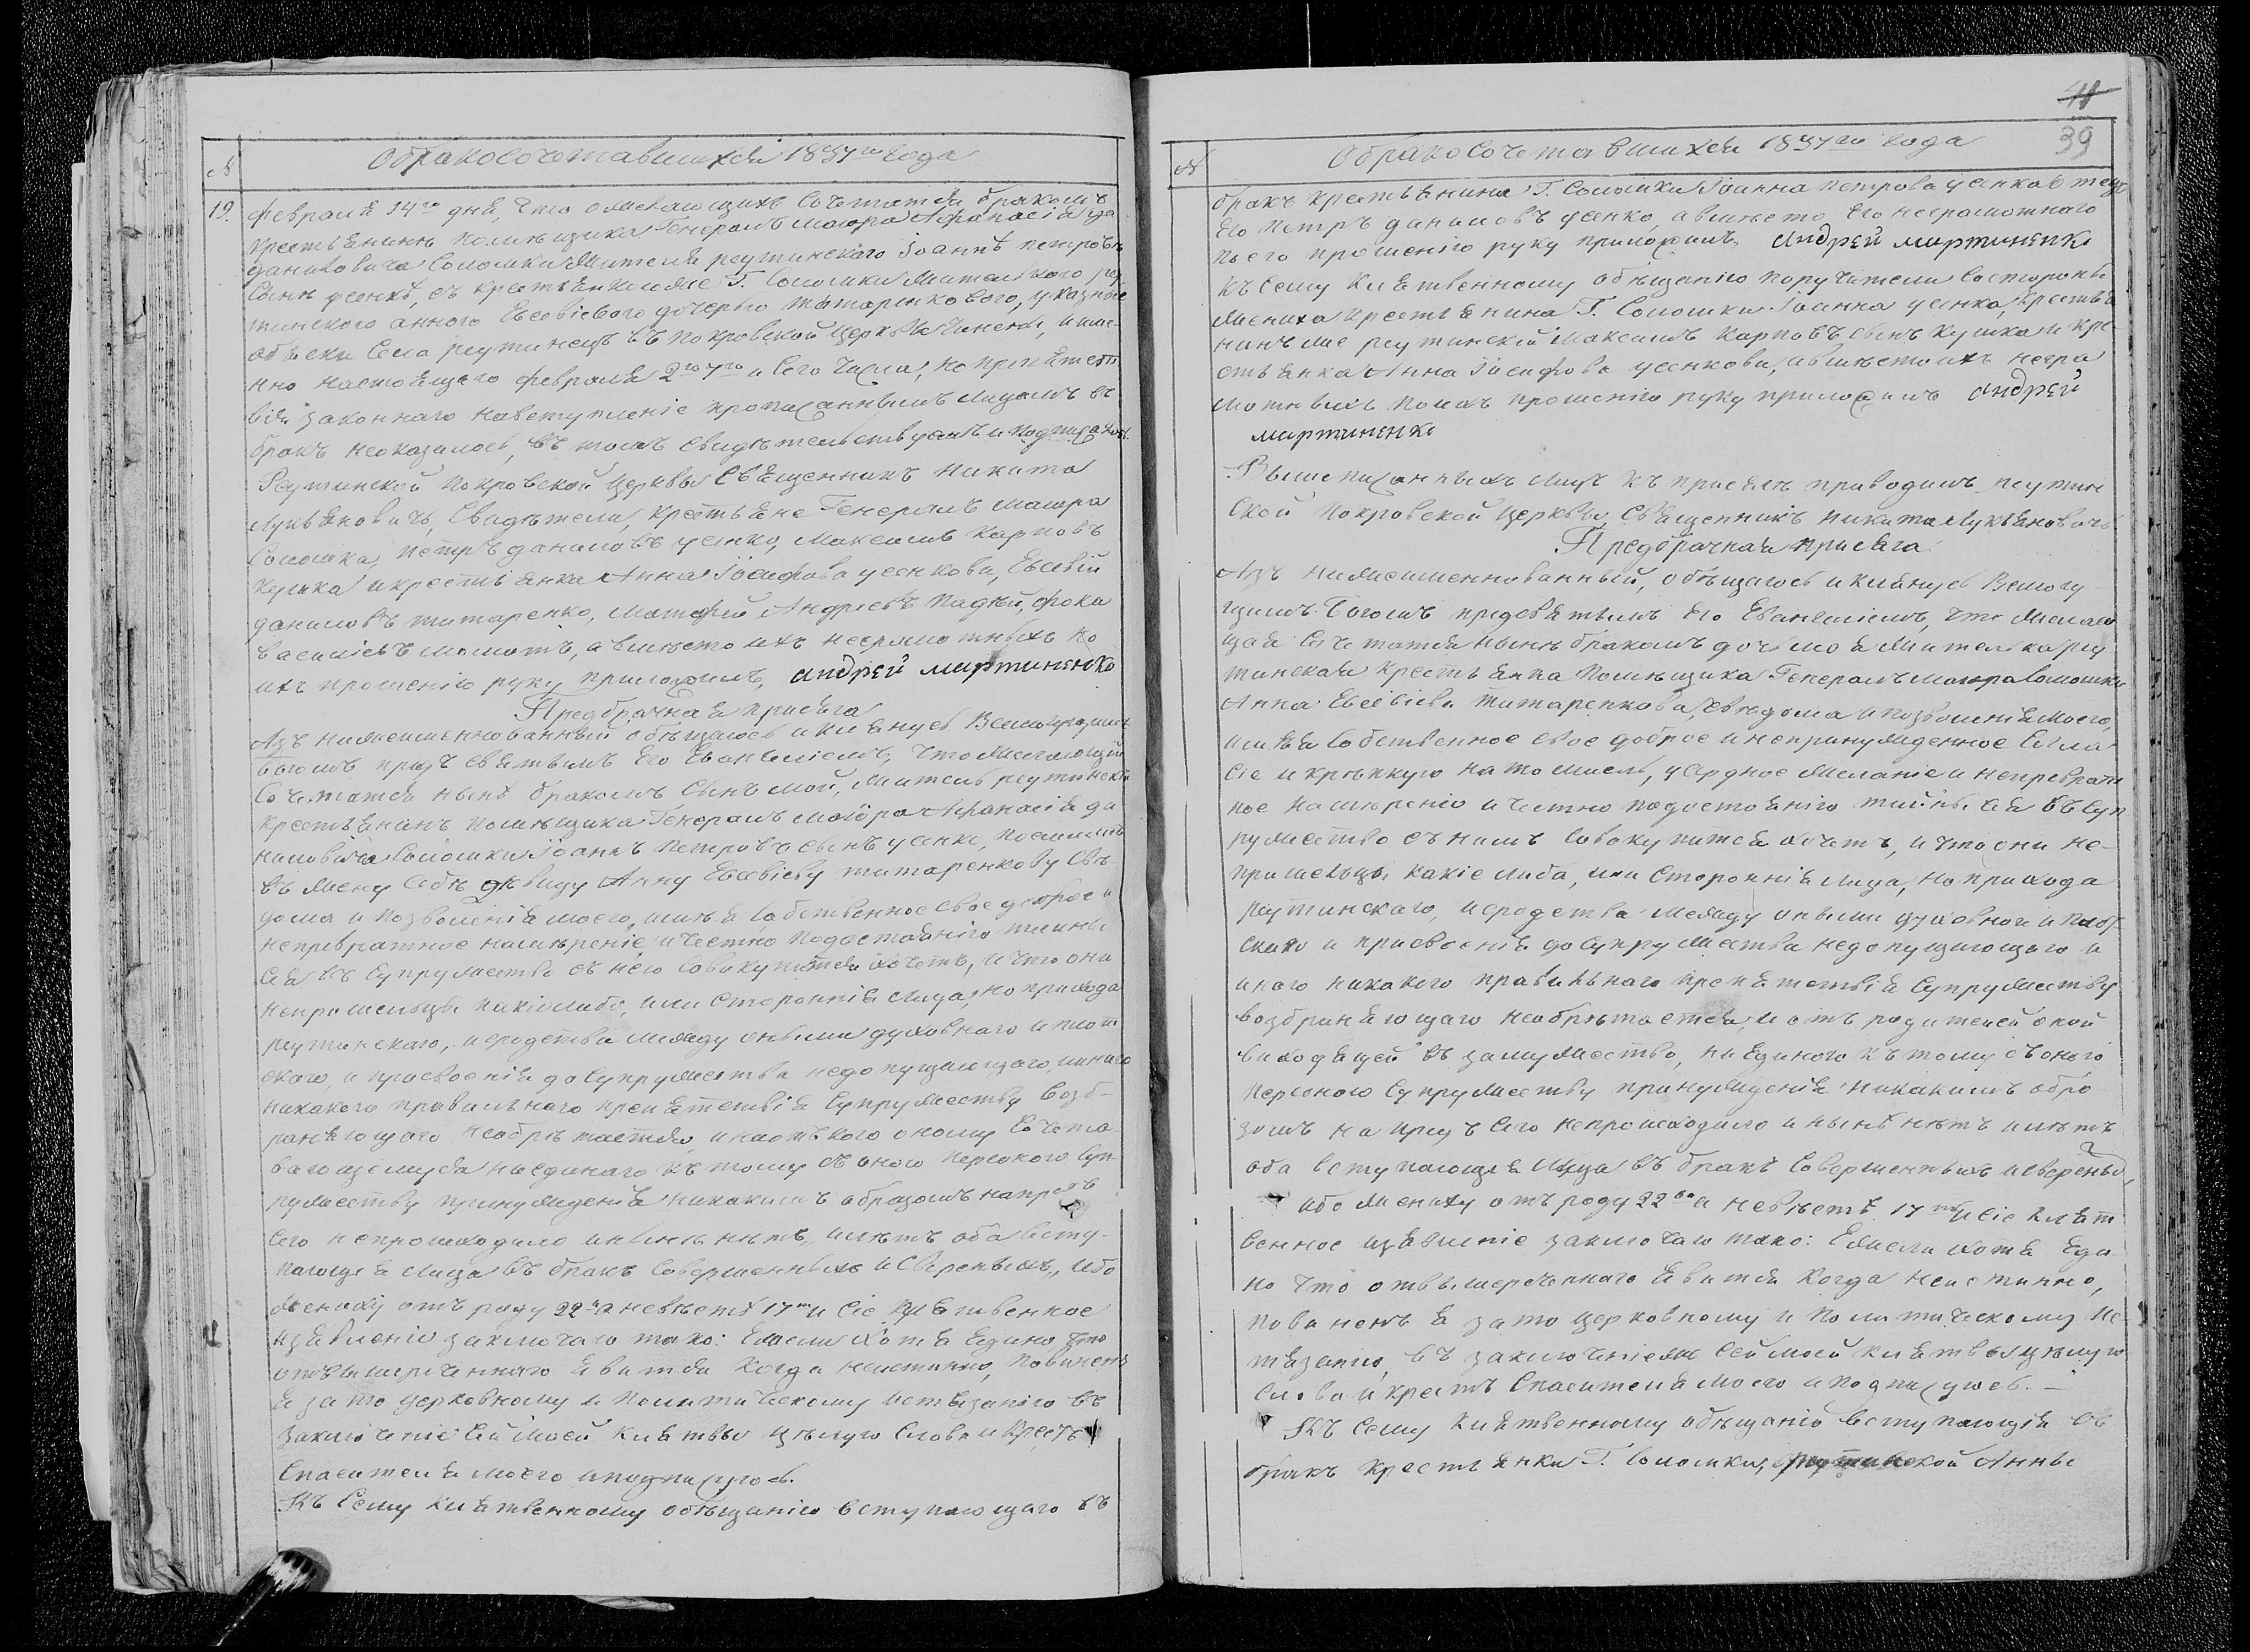 О бракосочетавшихся 1837го Года
№
19. Февраля 14го дня, что о желающихъ сочетатся бракомъ
крестьянинъ помѣщика Генералъ Маіора Афанасія да
ниловича Соломки жителя реутинского Іоаннъ петровъ
сынъ усенкѣ, съ крестьянкою же Г. Соломки жителькою реу
тинского анного Евсевіевого дочерью титаренкового, указные
обыски села реутинецъ въ покровской церкви чинены, имя-
нно настоящего февраля 2го 7го и сего числа; но препятст
вія законнаго навступленіе прописаннымъ лицамъ въ
бракъ неоказалось, въ томъ свидѣтельствуемъ и подписуемся.
Реутинской покровской церквы Священникъ Никита
Лукьяновичъ, Свидѣтели, крестьяне Генералъ маіора
Соломка, петръ даниловъ усенко, Максимъ Карповъ
Кушка икрестьянка Анна Іосифова усенкова, Евсевій
даниловъ титаренко, Матфей Андреевъ падѣй, фока
василіевъ мамотъ, авмѣсто ихъ неграмотныхъ по
ихъ прошенію руку приложилъ, андрей мартиненко
Предбрачная присяга
Азъ нижеименнованный обѣщаюсь и клянусь Всемогущимъ
богомъ предъ святымъ его Евангеліемъ, что желающій
сочетатся нынѣ бракомъ сынъ мой, житель реутинскій
крестьянинъ помѣщика Генералъ маіора Афанасія да
ниловича Соломки Іоаннъ петровъ сынъ усенко, поемлетъ
въ жену себѣ дѣвицу Анну Евсевіеву титаренкову свѣ-
дома и позволенія моего, имѣя собственное свое доброе и
непревратное намѣреніе и честно подостоянію тайны
сея въ супружество съ нею совокупитися хочетъ, и что они
непришельцы какіелибо, или сторонніе лица, но прихода
реутинскаго, и сродства между оными духовнаго и плот
скаго, и присвоенія до супружества недопущающаго, и инаго
никакого правильного препятствія супружеству возб-
раняющаго необрѣтается, и наотъкого оному сочета-
вающемуся ниединаго къ тому съ оною персоною суп-
ружеству принужденія никакимъ образомъ напредъ
сего непроисходило инынѣ нѣтъ, имѣтъ оба всту-
пающія лица въ бракъ совершенныхъ и сверсныхъ, ибо
жениху отъ роду 22два невѣстѣ 17ть и сіе клятвенное
изявленіе заключаю тако: Ежели хотя Едино что
отвышереченнаго явится когда неистинно, повиненъ
я зато церковному и политическому истязанію въ
заключеніе сей моей клятвы цѣлую слова и крестъ
Спасителя моего иподписуюсь.
Къ сему клятвенному обѣщанію вступающаго въ
11
39
О бракосочетавшихся 1837го года
№
бракъ крестьянина Г. Соломки Іоанна петрова усенка отецъ
его петръ даниловъ усенко, авмѣсто его неграмотнаго
поего прошенію руку приложилъ, андрей мартиненко
къ сему клятвенному обѣщанію поручители состороны
жениха крестьянина Г. Соломки Іоанна усенка, крестья
нинъ же реутинскій Максимъ Карповъ сынъ Кушка и кре-
стьянка Анна Іосифова усенкова, авмѣсто ихъ негра
мотныхъ поихъ прошенію руку приложилъ андрей
мартиненко
Вышеписанныхъ лицъ къ присягѣ приводилъ реутин
ской покровской церквы священникъ никита Лукьяновичъ
Предбрачная присяга
Азъ нижеименнованный, обѣщаюсь и клянусь Всемогу-
щимъ богомъ предсвятымъ его Евангеліемъ, что желаю
щая сочетатся нынѣ бракомъ дочь моя жителька реу
тинская крестьянка помѣщика Генералъ маіора Соломки
Анна Евсевіева титаренкова, свѣдома и позволенія моего,
имѣя собственное свое доброе и непринужденное согла-
сіе и крѣпкую на то мысль, усердное желаніе и непреврат
ное намѣреніе и честно подостоянію тайны сея въ суп
ружество съ нимъ совокупитися хочетъ, и что они не-
пришельцы какіе либо, или сторонніе лица, но прихода
реутинскаго, исродства между оными духовнаго и плот
скаго и присвоенія до супружества недопущающаго и
инаго никакого правильнаго препятствія супружеству
возбраняющаго необрѣтается, и отъ родителей оной
виходящей въ замужество, ниединого къ тому съ оною
персоною супружеству принужденія никакимъ обра
зомъ напредъ сего непроисходило и нынѣ нѣтъ имѣтъ
оба вступающія лица въ бракъ совершенныхъ исверсных
ибо жениху отъ роду 22ва невѣстѣ 17ть и сіе клят
венное изявленіе заключаю тако: Ежели хотя Еди-
но что отвышереченнаго явится когда неистинно,
повиненъ я зато церковному и политическому ис-
тязанію, въ заключеніеже сей моей клятвы цѣлую
слова и крестъ Спасителя моего и подписуюсь. —
Къ сему клятвенному обѣщанію вступающія въ
бракъ крестьянки Г. Соломки, реутинской Анны